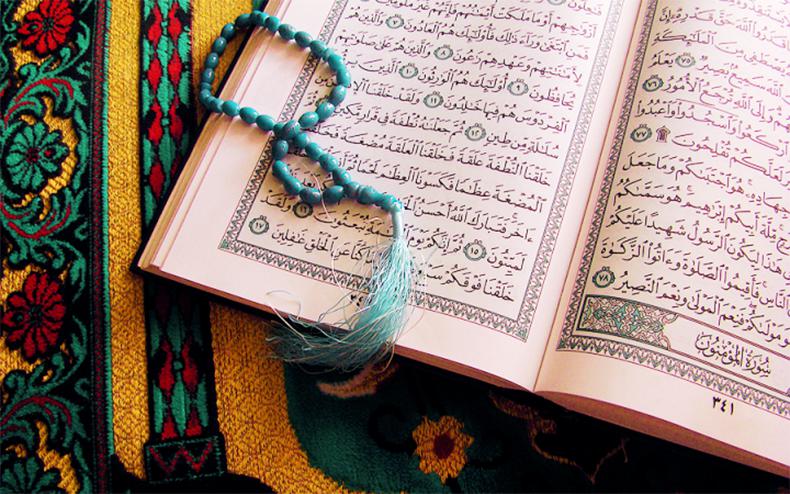 قَدَرُوا۟ ٱللَّهَ حَقَّ قَدْرِهِۦٓ إِنَّ
يَصْطَفِى مِنَ ٱلْمَلَٰٓئِكَةِ
ٱللَّهَ سَمِيعٌۢ بَصِيرٌ ٧٥ يَعْلَمُ
وَإِلَى ٱللَّهِ تُرْجَعُ ٱلْأُمُورُ ٧٦
ٱرْكَعُوا۟ وَٱسْجُدُوا۟ وَٱعْبُدُوا۟
لَعَلَّكُمْ تُفْلِحُونَ ٧٧
جِهَادِهِۦ هُوَ ٱجْتَبَىٰكُمْ وَمَا جَعَلَ
مِّلَّةَ أَبِيكُمْ إِبْرَٰهِيمَ هُوَ سَمَّىٰكُمُ
هَٰذَا لِيَكُونَ ٱلرَّسُولُ شَهِيدًا عَلَيْكُمْ
ٱلنَّاسِ فَأَقِيمُوا۟ ٱلصَّلَوٰةَ وَءَاتُوا۟ ٱلزَّكَوٰةَ
هُوَ مَوْلَىٰكُمْ فَنِعْمَ ٱلْمَوْلَىٰ وَنِعْمَ ٱلنَّصِيرُ ٧٨
سُورَةُ المُؤْمِنُونَ
٣٤١
أَزْوَٰجِهِمْ أَوْ مَا مَلَكَتْ أَيْمَٰنُهُمْ فَإِنَّهُمْ غَيْرُ مَلُومِينَ
فَمَنِ ٱبْتَغَىٰ وَرَآءَ ذَٰلِكَ فَأُو۟لَٰٓئِكَ هُمُ ٱلْعَادُونَ ٧ وَٱلَّذِينَ هُمْ
لِأَمَٰنَٰتِهِمْ وَعَهْدِهِمْ رَٰعُونَ ٨ وَٱلَّذِينَ هُمْ عَلَىٰ صَلَوَٰتِهِمْ
يُحَافِظُونَ ٩ أُو۟لَٰٓئِكَ هُمُ ٱلْوَٰرِثُونَ ١٠ ٱلَّذِينَ يَرِثُونَ
ٱلْفِرْدَوْسَ هُمْ فِيهَا خَٰلِدُونَ ١١ وَلَقَدْ خَلَقْنَا
سُلَٰلَةٍ مِّن طِينٍ ١٢ ثُمَّ جَعَلْنَٰهُ نُطْفَةً فِى قَرَارٍ مَّكِينٍ
خَلَقْنَا ٱلنُّطْفَةَ عَلَقَةً فَخَلَقْنَا ٱلْعَلَقَةَ مُضْغَةً فَخَلَقْنَا
ٱلْمُضْغَةَ عِظَٰمًا فَكَسَوْنَا ٱلْعِظَٰمَ لَحْمًا
ءَاخَرَ فَتَبَارَكَ ٱللَّهُ أَحْسَنُ
لَمَيِّتُونَ ١٥ ثُمَّ إِنَّكُمْ يَوْمَ ٱلْقِيَٰمَةِ تُبْعَثُونَ ١٦ وَلَقَدْ
خَلَقْنَا فَوْقَكُمْ سَبْعَ وَمَا كُنَّا عَنِ ٱلْخَلْقِ غَٰفِلِينَ ١٧